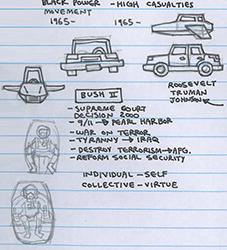 BLACK POWER - HIGH CASUALTIES
MOVEMENT
1965- 1965-
ROOSEVELT
TRUMAN
JOHNSON
BUSH II
- SUPREME COURT
DECISION 2000
- 9/11 → PEARL HARBOR
- WAR ON TERROR
- TYRANNY → IRAQ
- DESTROY TERRORISM → AFG.
- REFORM SOCIAL SECURITY
INDIVIDUAL - SELF
COLLECTIVE - VIRTUE